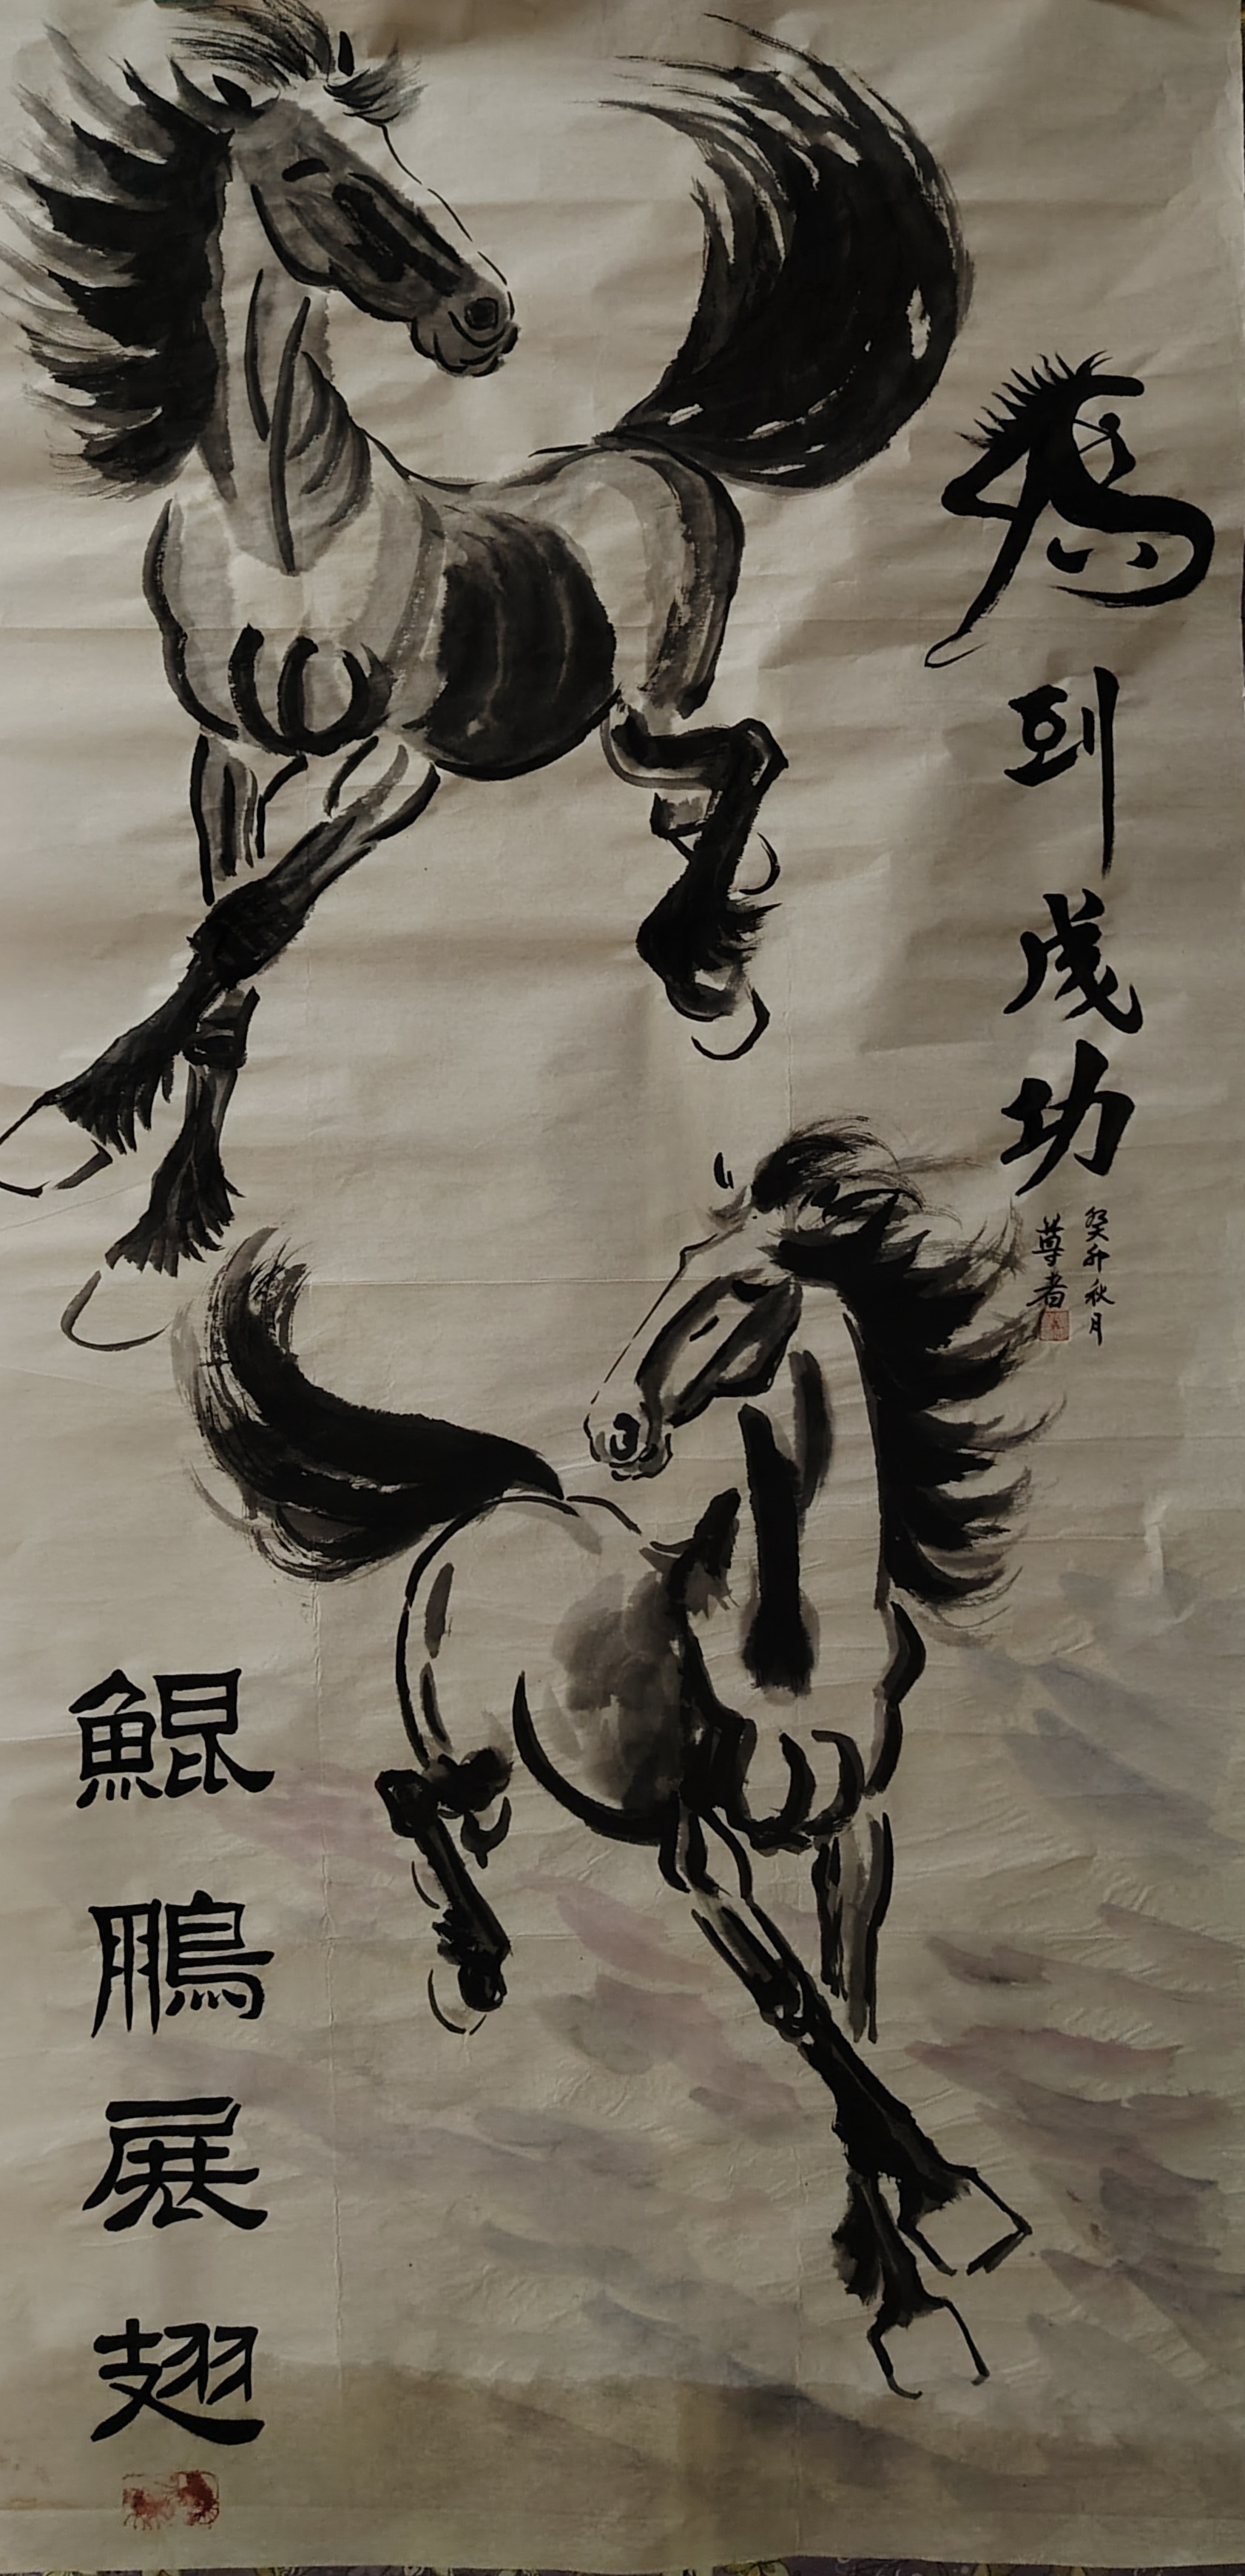 馬到成功
癸卯秋月
尊者
鯤鵬展翅